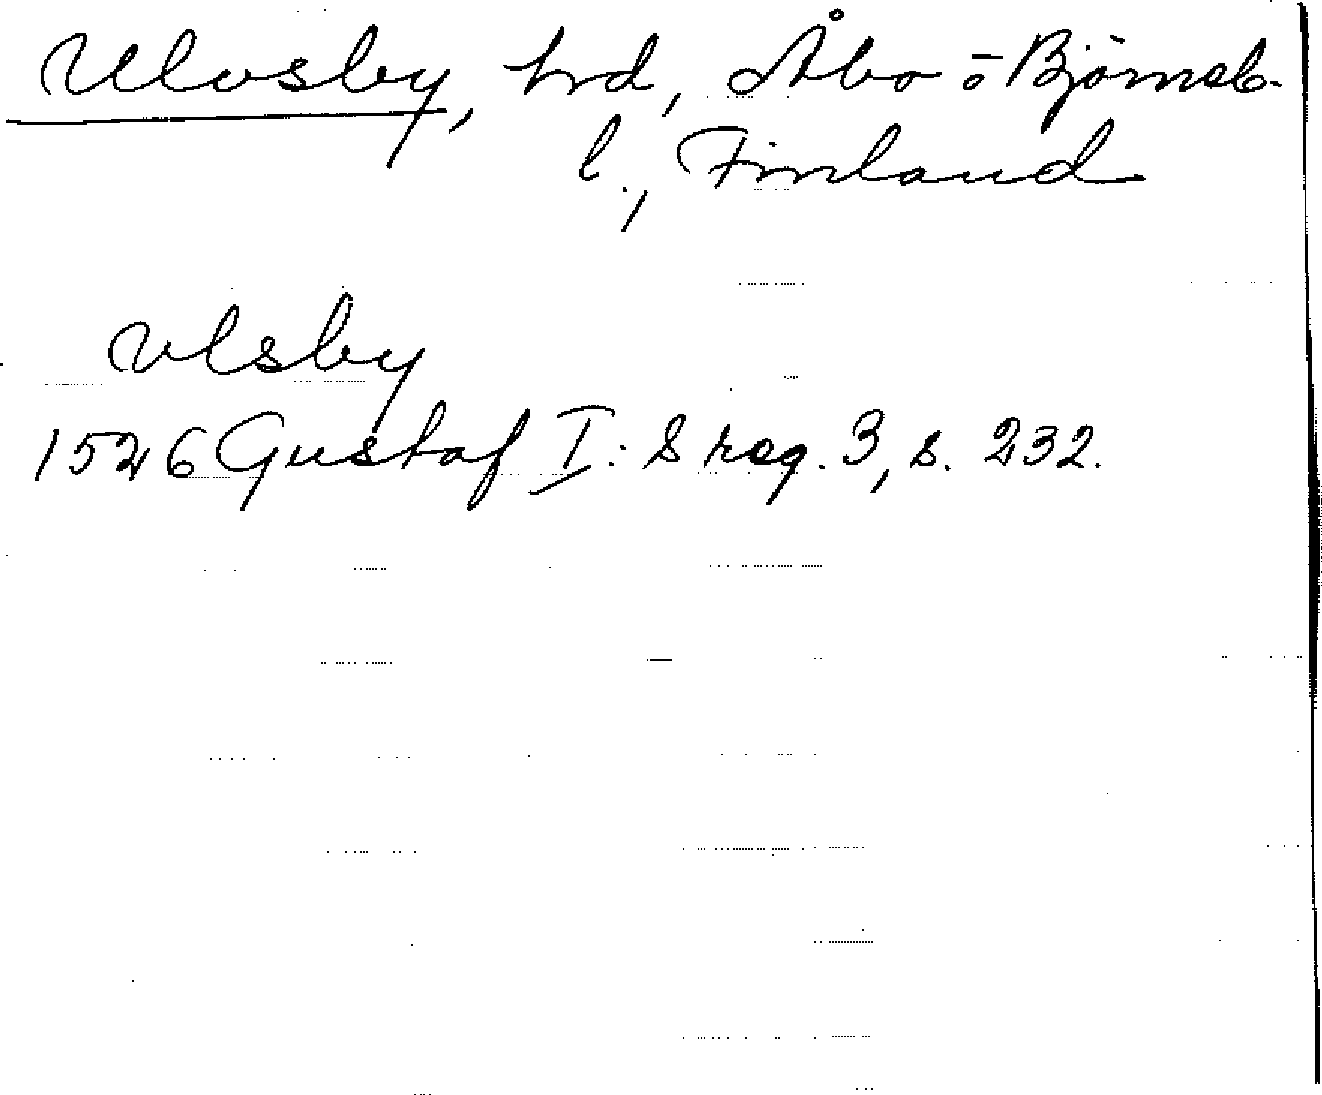 Ulvsby, hrd, Åbo o Björneb.
l., Finland
vlsby
1526 Gustaf I: s reg. 3, s. 232.